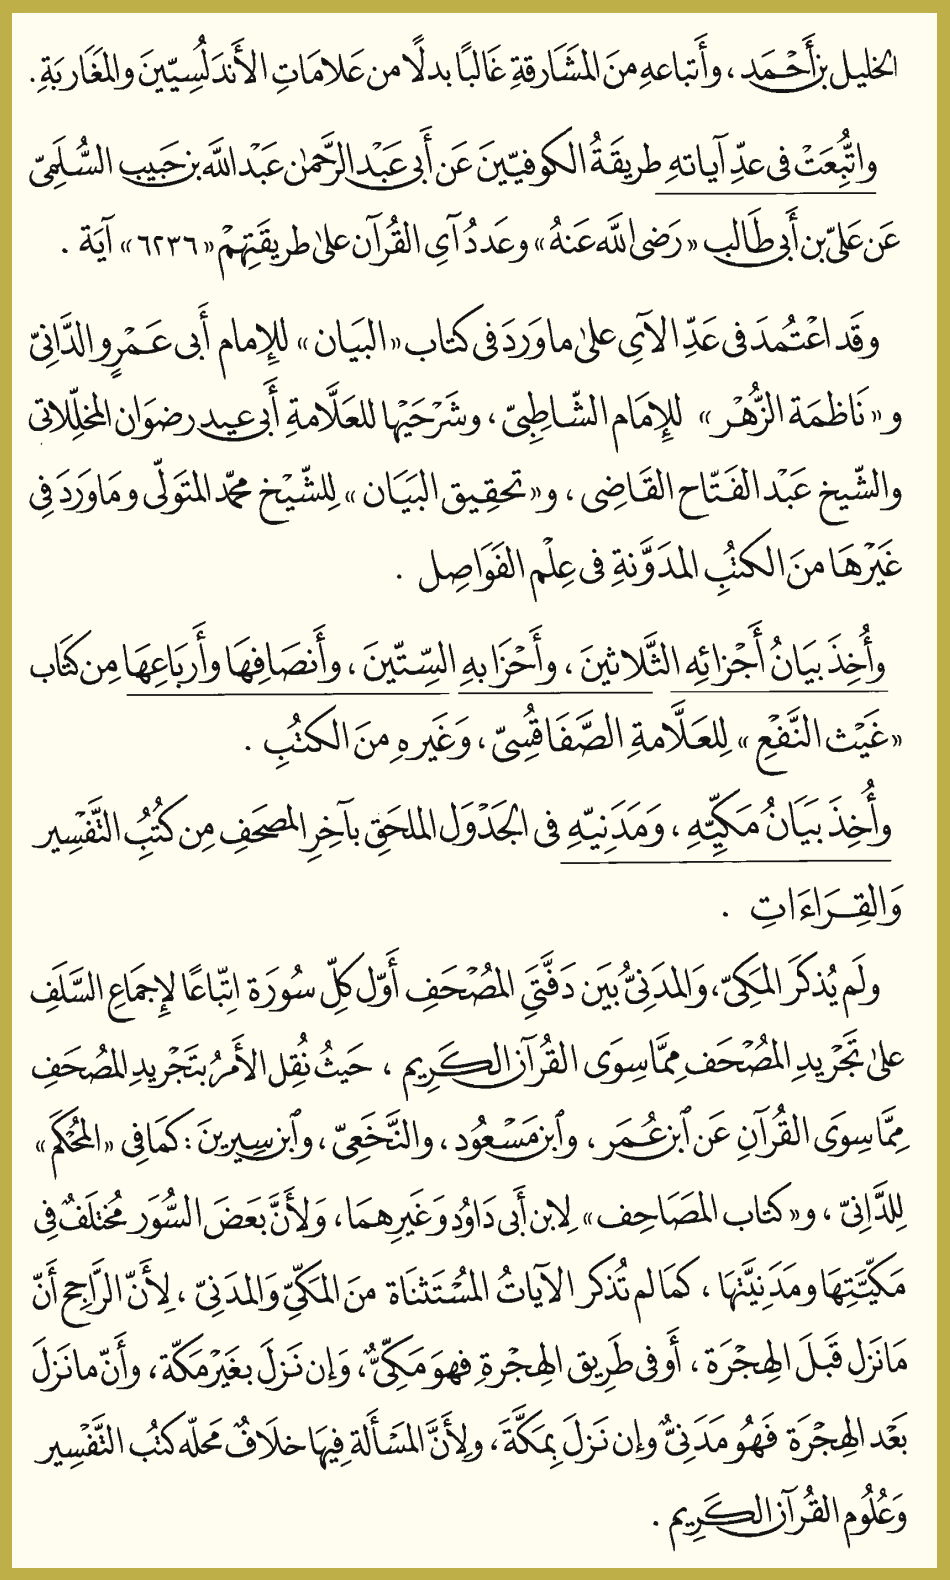 الخليل بن أَحْمَد ، وأَتباعهِ منَ المشَارقةِ غَالبًا بدلًا من عَلامَاتِ الأَندَلُسِيّينَ والمغَاربَةِ .
واتُّبِعَتْ فى عدِّ آياتهِ طريقَةُ الكوفيّينَ عَن أَبى عَبْد الرَّحمٰن عَبْد اللَّه بن حَبيب السُّلَمِىّ
عَن عَلىّ بن أَبى طَالب « رَضى اللَّه عَنهُ » وعَددُ آىِ القُرآن علىٰ طريقَتِهِمْ « ٦٢٣٦ » آيَة .
وقَد اعْتُمدَ فى عَدِّ الآىِ علىٰ ما وَرَدَ فى كتاب « البَيان » للإِمام أَبى عَمْرٍو الدَّانِىّ
و « نَاظمَة الزُّهْر » للإِمَام الشّاطِبِىّ ، وشَرْحَيْها للعَلَّامةِ أَبى عيد رضوَان المخلِّلاتى
والشّيخ عَبْد الفَتّاح القَاضِى ، و « تحقِيق البَيَان » لِلشّيْخ محمّد المتوَلّى ومَا وَرَدَ فِى
غَيْرهَا منَ الكتُبِ المدَوَّنةِ فى عِلْم الفَوَاصِل .
وأُخِذَ بيَانُ أَجْزائِه الثَّلاثينَ ، وأَحْزَابهِ السِّتّينَ ، وأَنصَافِهَا وأَربَاعِهَا مِن كتَاب
« غَيْث النَّفْعِ » لِلعَلّامةِ الصَّفَاقُسِىّ ، وَغَيرهِ مِنَ الكتُبِ .
وأُخِذَ بَيَانُ مَكِيِّهِ ، وَمَدَنِيّهِ فى الجَدْوَل الملحَقِ بآخِرِ المصحَفِ مِن كتُبِ التَّفْسِير
وَالقِرَاءَاتِ .
ولَم يُذكَرَ المَكِىّ ، وَالمدَنِىُّ بَيَن دَفَّتَىِ المُصْحَفِ أَوّلَ كلِّ سُورَة اتِّباعًا لإِجمَاعِ السَّلَفِ
علىٰ تَجْريدِ المصُحَفِ مِمَّا سِوَى القُرآن الكَرِيم ، حَيثُ نُقِل الأَمرُ بتَجْريدِ المصُحَفِ
مِمَّا سِوَى القُرآنِ عَن ٱبن عُمَر ، وٱبن مَسْعُود ، والنَّخَعِىّ ، وٱبن سِيرينَ : كمَا فِى « المحُكَم »
لِلدَّانِىّ ، و « كتاب المصَاحِف » لِابن أَبى دَاوُد وَغَيرِهمَا ، وَلِأَنَّ بَعَضَ السُّوَر مُختلَفٌ فِى
مَكيّتِهَا ومَدَنِيَّتهَا ، كمَا لم تُذكر الآياتُ المُسْتَثنَاة منَ المَكىِّ وَالمدَنِىّ ، لِأَنّ الرَّاجِحَ أَنّ
مَا نَزل قَبلَ الهِجْرَة ، أَو فى طَرِيق الهِجْرةِ فهوَ مَكىٌّ ، وَإن نَزلَ بغَيْر مَكّة ، وأَنّ ما نَزلَ
بَعْد الهِجْرَة فَهُو مَدَنىٌّ وإن نَزلَ بِمَكَّةَ ، ولِأَنَّ المسَأَلة فِيهَا خلَافٌ مَحلّه كتبُ التَّفْسِير
وَعُلُوم القُرآن الكَرِيم .